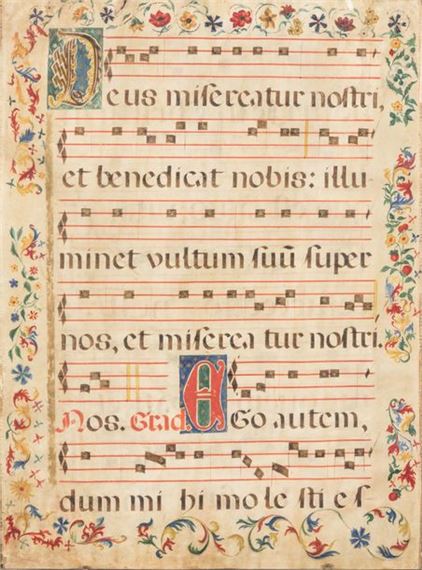 Deus miſereatur noſtri,
et benedicat nobis: illu-
minet vultum ſuũ ſuper
nos, et miſerea tur noſtri.
Nos. Grad. EGo autem,
dum mi hi mo le ſti e ſ-